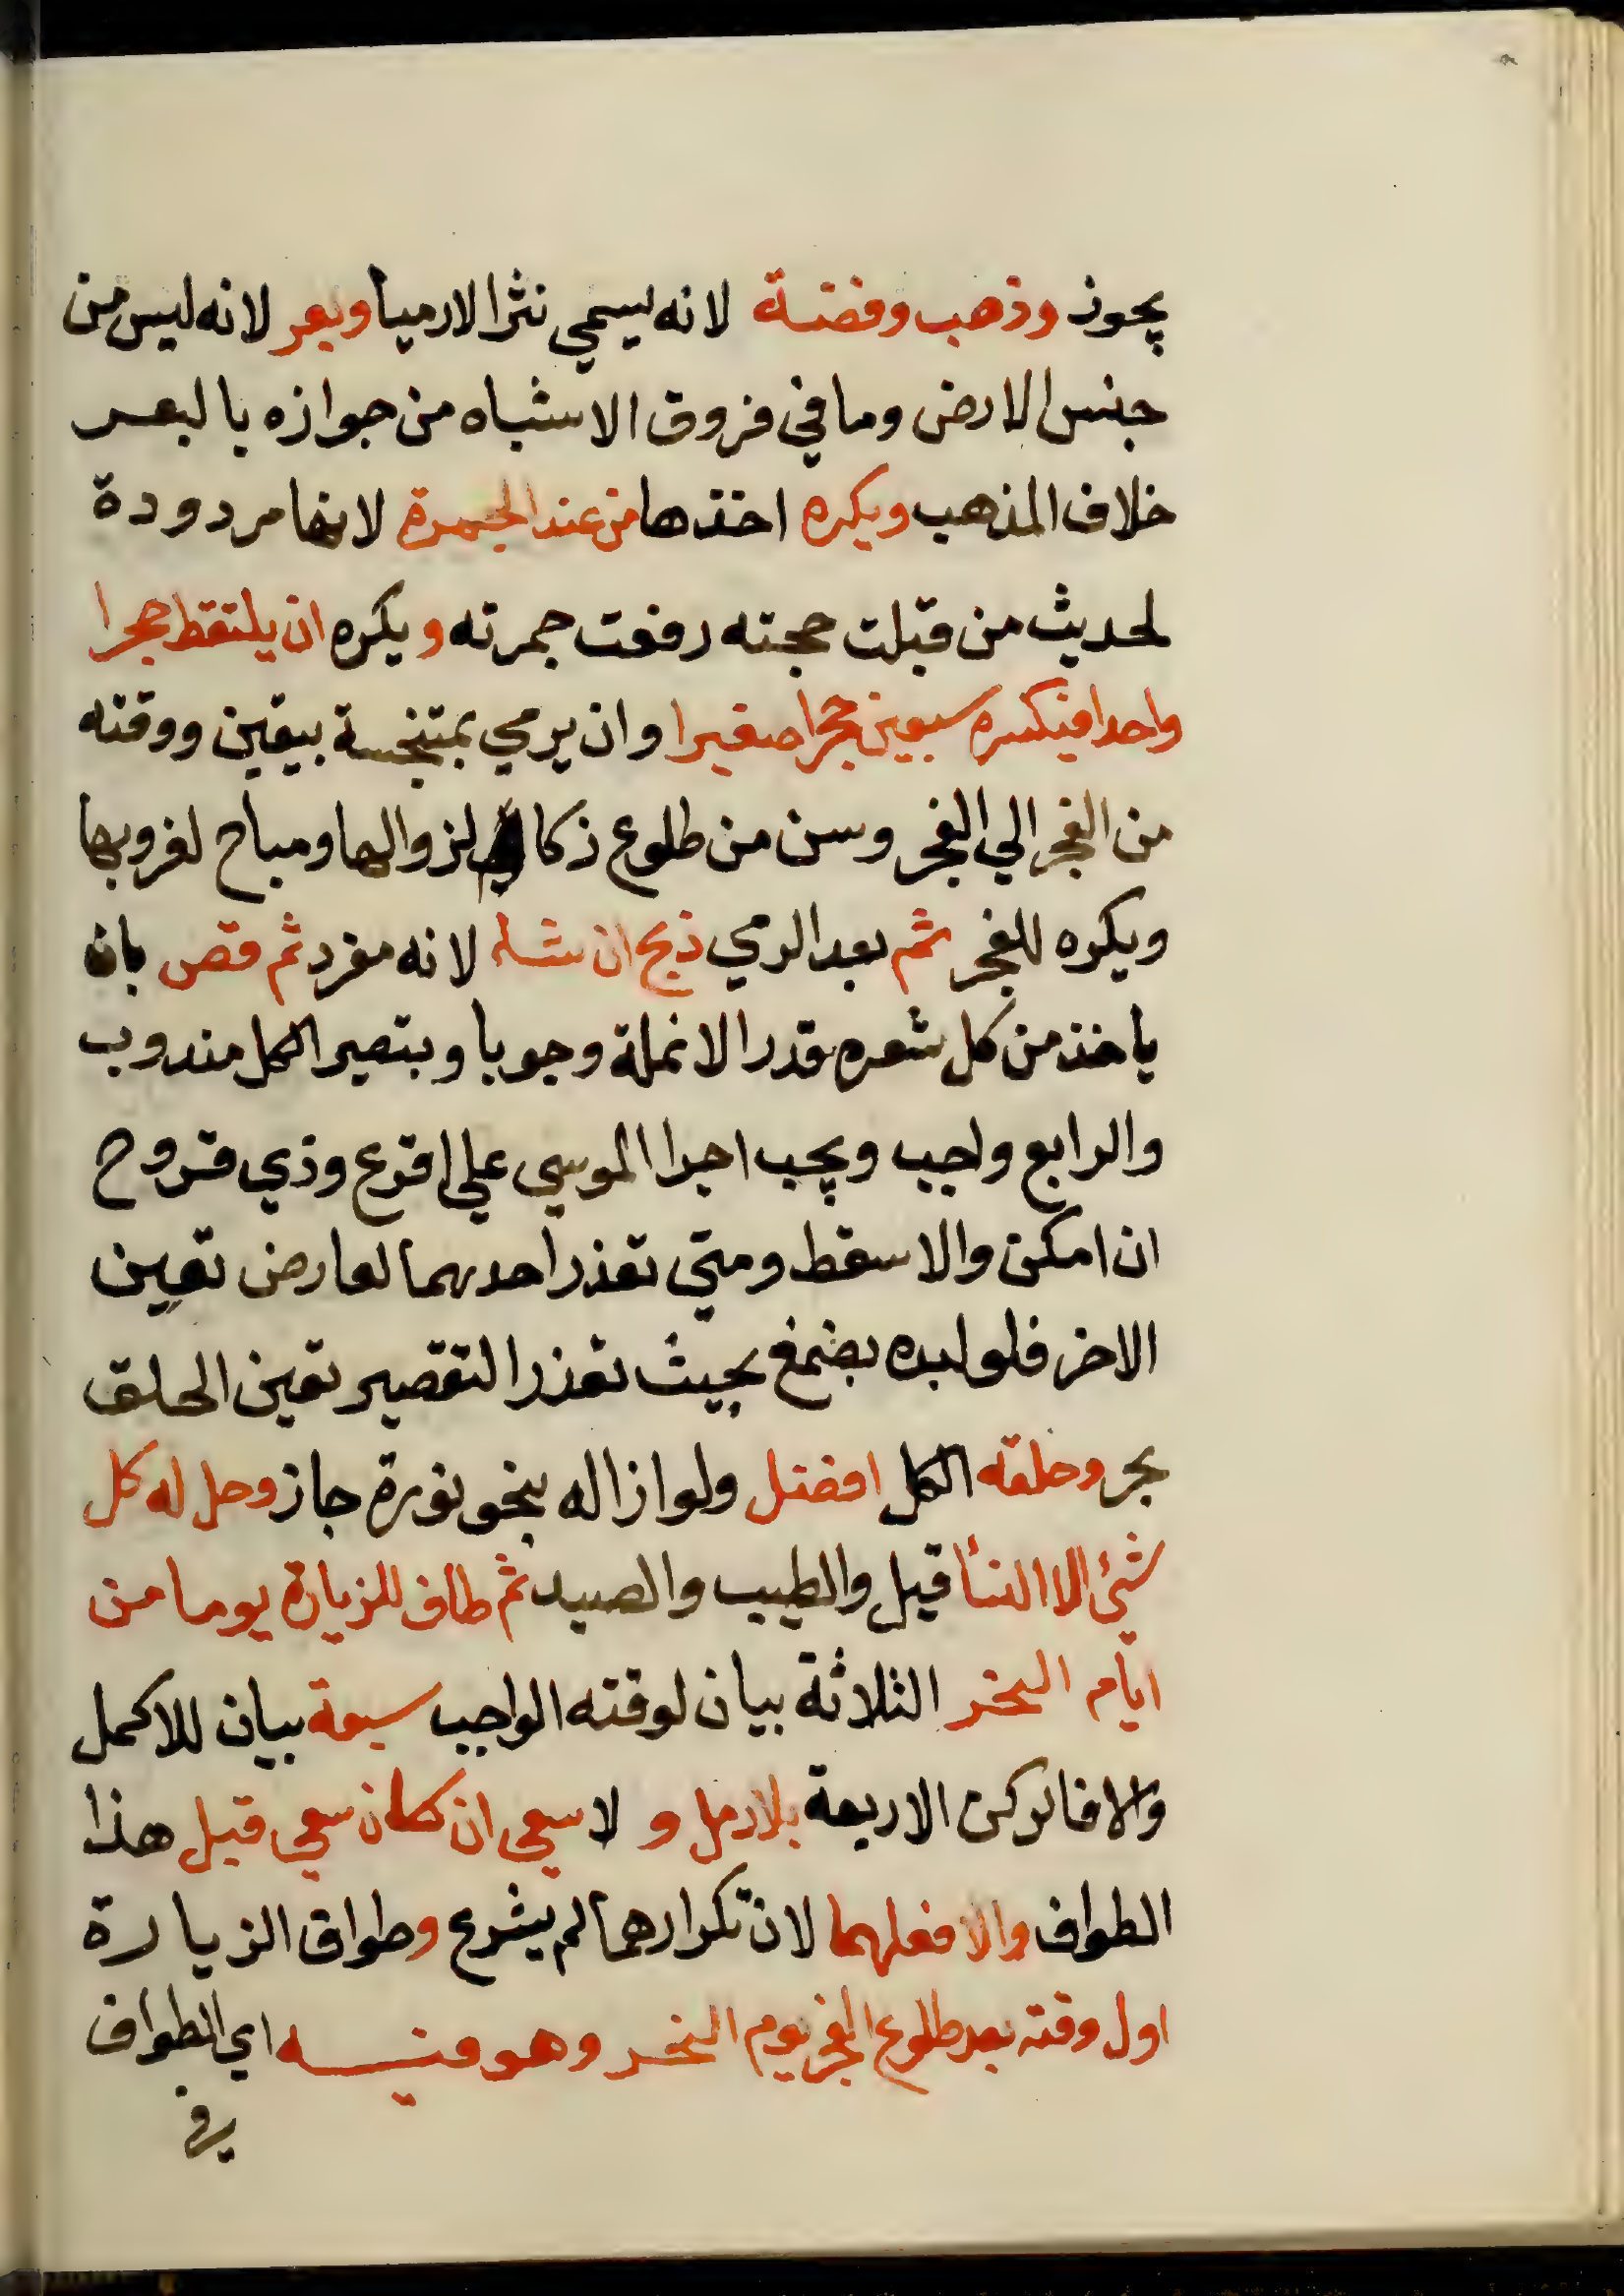 يجوز وذهب وفضة لانه يسمي نثرا لا رميا وبعر لانه ليس من
جنس الارض وما في فروق الاشباه من جوازه بالبعر
خلاف المذهب ويكره اخذها من عند الجمرة لانها مردودة
لحديث من قبلت حجته رفعت جمرته ويكره ان يلتقط حجرا
واحدا فيكسره سبعين حجرا صغيرا وان يرمي بمتنجسة بيقين ووقته
من الفجر الي الفجر وسن من طلوع ذكا لزوالها ومباح لغروبها
ويكره للفجر ثم بعد الرمي ذبح ان شاء لانه مفرد ثم قص بان
ياخذ من كل شعره قدر الانملة وجوبا وبتصير الكل مندوب
والرابع واجب ويجب اجرا الموسي علي اقرع وذي قروح
ان امكن والا سقط ومتي تعذر احدهما لعارض تعين
الاخر فلو لبده بضمغ بحيث تعذر التقصير تعين الحلق
بحر وحلقه الكل افضل ولو ازاله بنحو نورة جاز وحل له كل
شئ الا النسأ قيل والطيب والصيد ثم طاف للزيارة يوما من
ايام النحر الثلاثة بيان لوقته الواجب سبعة بيان للاكمل
والا فالركن الاربعة بلا رمل و لا سعي ان كان سعي قبل هذا
الطواف والا فعلهما لان تكرارهما لم يشرع وطواف الزيارة
اول وقته بعد طلوع الفجر يوم النحر وهو فيه اي الطواف
في